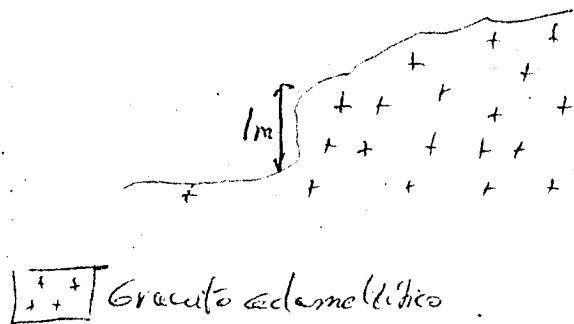 1m
Granito adamellítico